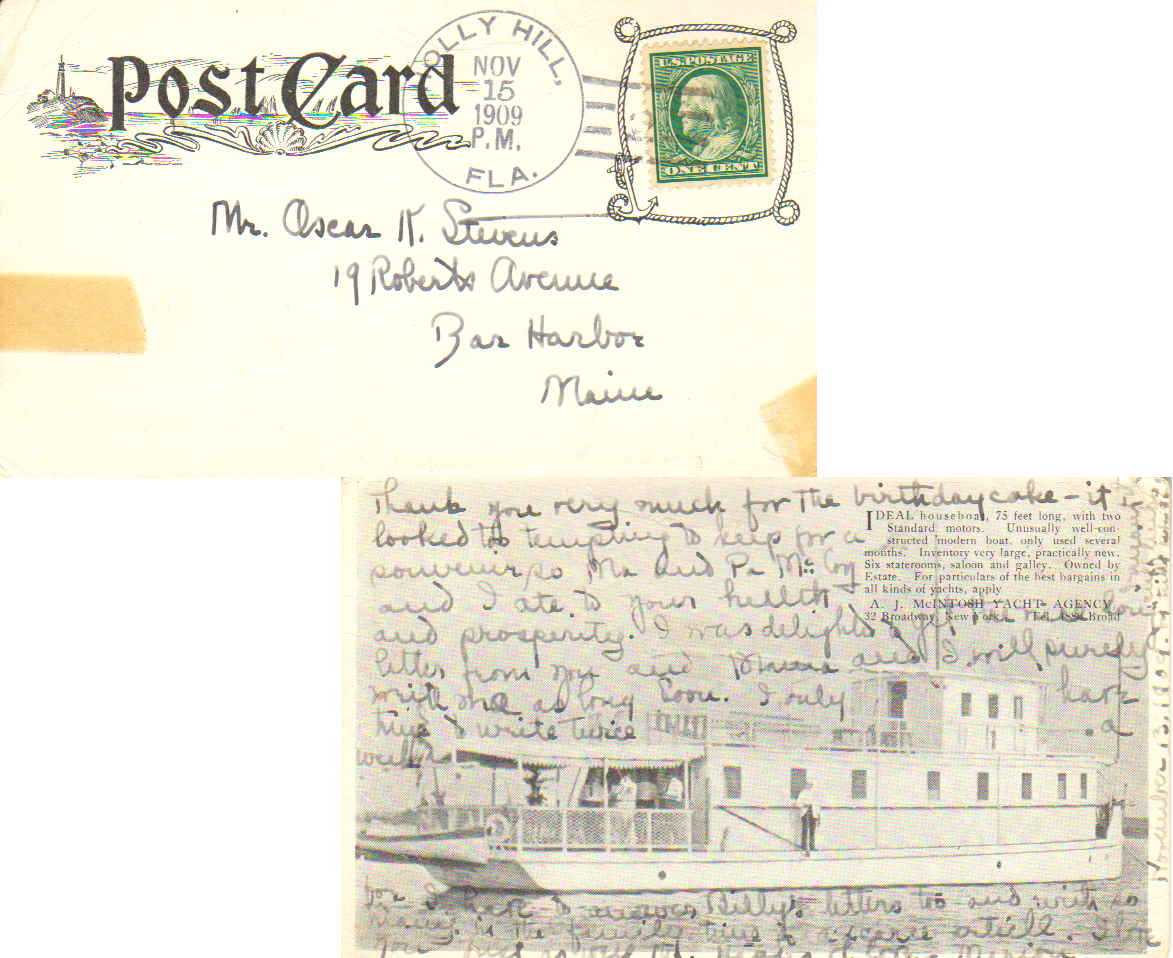 Post Card
HOLLY HILL,
NOV
15
1909
P.M.
FLA.
U.S. POSTAGE
ONE CENT
Mr. Oscar K. Stevens
19 Roberts Avenue
Bar Harbor
Maine
Thank you very much for the birthday cake - it
looked too tempting to keep for a
souvenir so Ma and Pa McCoy
and I ate to your health
and prosperity. I was delighted
letter from you and and I will surely
write as long soon. I only have
time to write twice a
week
IDEAL houseboat, 75 feet long, with two
Standard motors. Unusually well-con-
structed modern boat, only used several
months. Inventory very large, practically new.
Six staterooms, saloon and galley. Owned by
Estate. For particulars of the best bargains in
all kinds of yachts, apply
A. J. McINTOSH YACHT AGENCY
32 Broadway, New York. Tel. Broad
November 13, 1909.
for I have to answer Billy's letters too and with so
many in the family time is a scarce article. I love
you